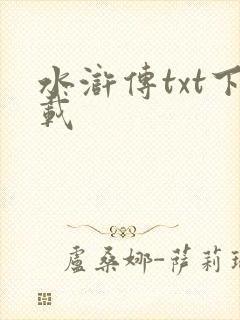 水滸傳txt下
載
盧桑娜-薩莉